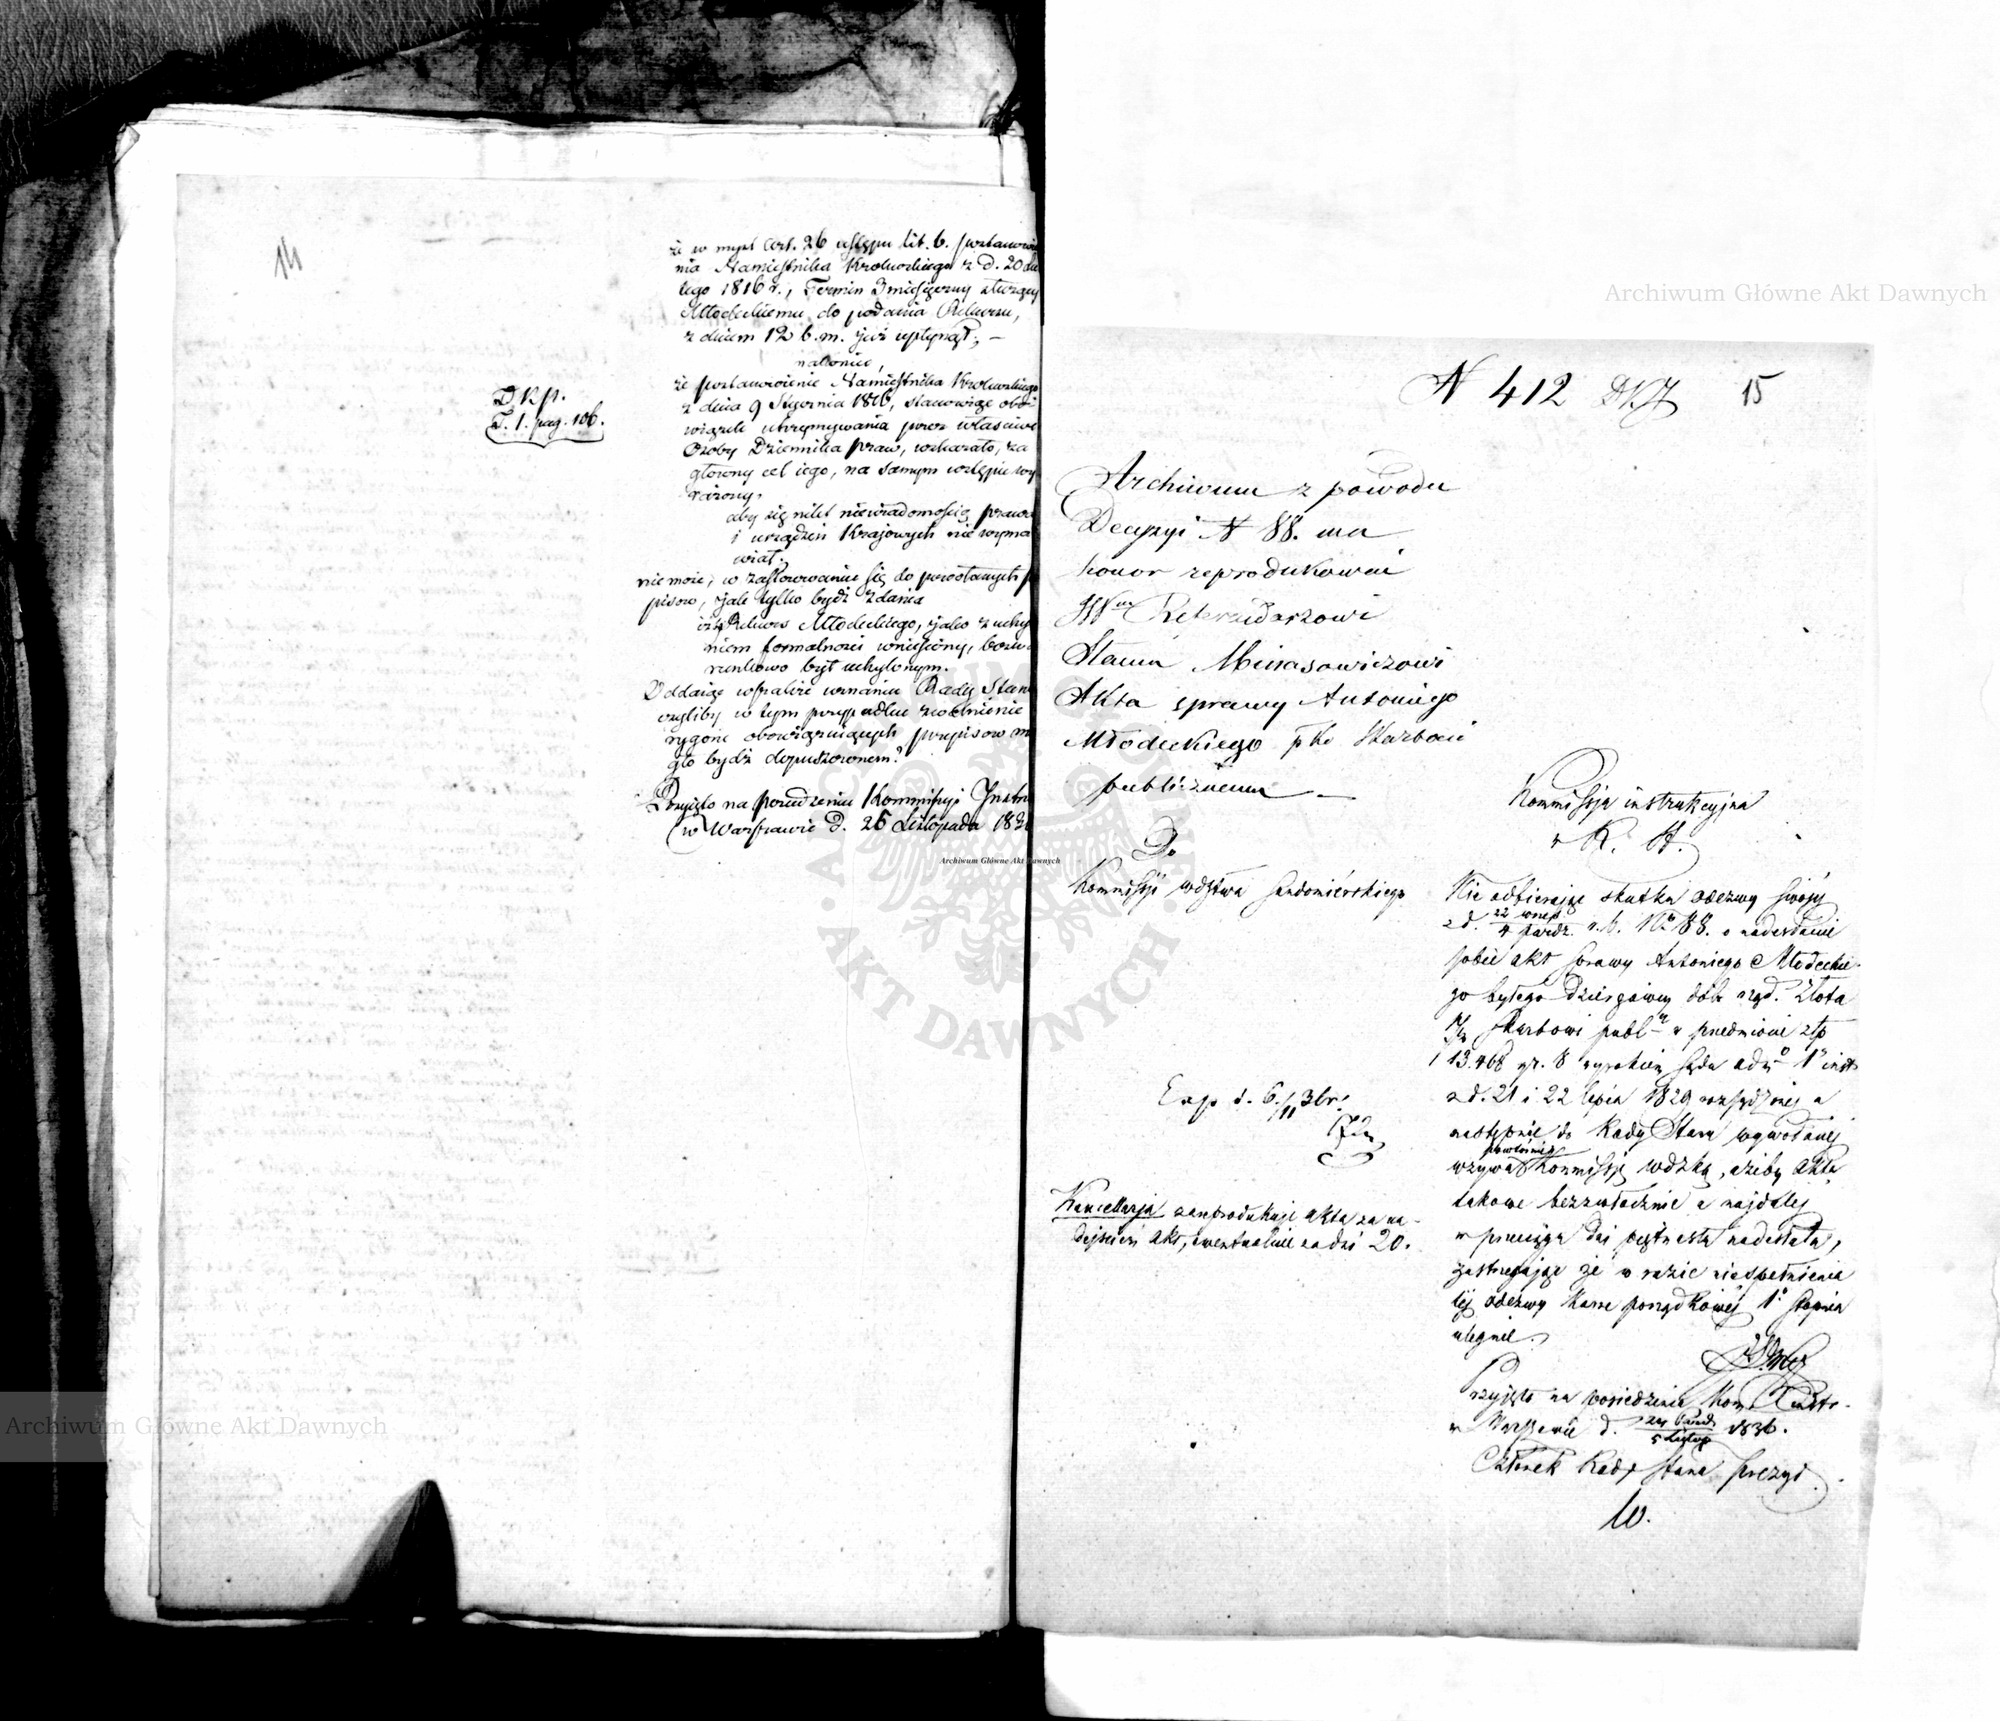 14
że w myśl art. 26 ustępu lit. b. postanowie
nia Namiestnika Krolewskiego z d. 20 Lu
tego 1816 r., Termin 3 miesięczny służący
Młodeckiemu do podania Rekursu,
z dniem 12 b.m. już upłynął; —
nakoniec,
że postanowienie Namiestnika Krolewskiego
z dnia 9 Stycznia 1816, stanowiąc obo
D.K.P.
T. 1. pag. 106.
wiązek utrzymywania przez właściwe
Osoby Dziennika praw, wskazało, za
głowny cel iego, na samym wstępie wy
rażony,
aby się nikt niewiadomością prawa
i urządzeń Krajowych nie wyma
wiał.
nie może, w zastosowaniu się do powołanych p
pisow, jak tylko bydź zdania
iżby Rekurs Młodeckiego, jako z uchy
niem formalności wniesiony, bezwa
runkowo był uchylonym.
Oddaiąc wszakże uznaniu Rady Stanu
czyliby w tym przypadku zwolnienie
rygoru obowiązuiących przepisow m
gło bydź dopuszczonem?
Przyięto na posiedzeniu Kommissyi Instru
w Warszawie d. 26 Listopada 183
N 412 15
Archiwum z powodu
Decyzyi N 88. ma
honor reprodukować
JW Referendarzowi
Stanu Minasowiczowi
Akta sprawy Antoniego
Młodeckiego pko Skarbowi
publicznemu —
Do
Kommissyi wdztwa Sandomierskiego
Exp d. 6/11
Kancellarja zareprodukuje akta za na-
dejściem akt, ewentualnie za dni 20.
Kommissja instrukcyjna
w R. St.
Nie odbierając skutku odezwy swojej
z d. 22 wrześ / 4 paźdz. r. b. No 88. o nadesłanie
sobie akt sprawy Antoniego Młodeckie-
go byłego Dzierżawcy dóbr rząd. Złota
Skarbowi publ w przedmiocie złp
13.468 gr. 8 wyrokiem Sądu adm 1 inst
z d. 21 i 22 lipca 1829 rozsądzonej a
następnie do Rady Stanu wywołanej
powtórnie
wzywa Kommissję wdzką, ażeby akta
takowe bezzwłocznie a najdalej
w przeciągu dni piętnastu nadesłała,
zastrzegając że w razie niespełnienia
tej odezwy karze porządkowej 1o stopnia
ulegnie.
Przyjęto na posiedzeniu Kom. Instr.
w Warszawie d. 24 Paźd / 5 Listop 1836.
Członek Rady Stanu Prezyd
Archiwum Główne Akt Dawnych
Archiwum Główne Akt Dawnych
Archiwum Główne Akt Dawnych
ARCHIWUM GŁÓWNE AKT DAWNYCH